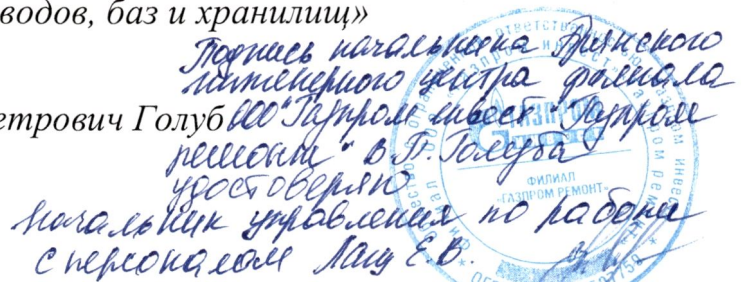 водов, баз и хранилищ»
Подпись начальника Брянского
инженерного центра филиала
етрович Голуб ООО "Газпром инвест" "Газпром
ремонт" В.П. Голуба
удостоверяю
Начальник управления по работе
с персоналом Лагу Е.В.
ГАЗПРОМ
ФИЛИАЛ
«ГАЗПРОМ РЕМОНТ»